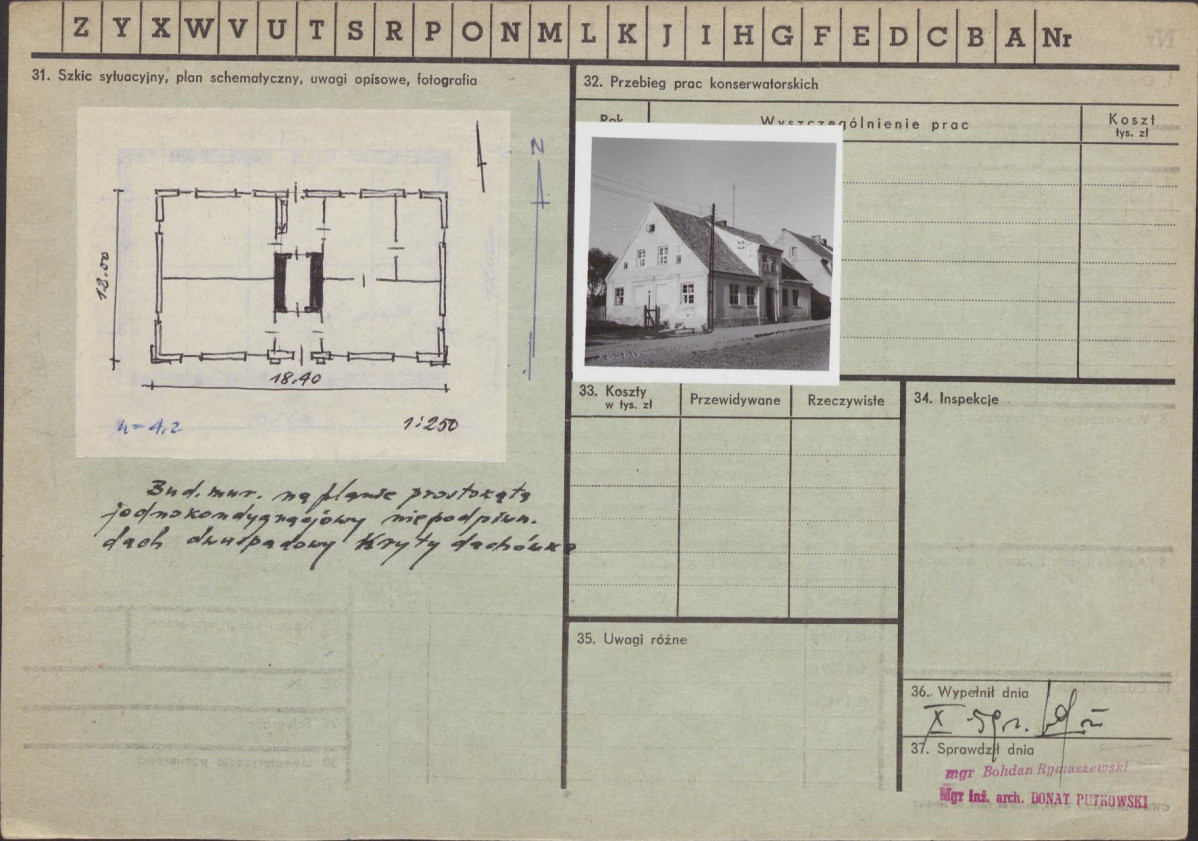 Z Y X W V U T S R P O N M L K J I H G F E D C B A Nr
31. Szkic sytuacyjny, plan schematyczny, uwagi opisowe, fotografia
N
12.00
18.40
h = 4,2
1:250
Bud. mur. na planie prostokąta
jednokondygnacjowy niepodpiwn.
dach dwuspadowy kryty dachówką
32. Przebieg prac konserwatorskich
Rok
Wyszczególnienie prac
Koszt
tys. zł
33. Koszty
w tys. zł
Przewidywane
Rzeczywiste
34. Inspekcje
35. Uwagi różne
36. Wypełnił dnia
X 59 r.
37. Sprawdził dnia
mgr Bohdan Rymaszewski
Mgr inż. arch. DONAT PUTKOWSKI